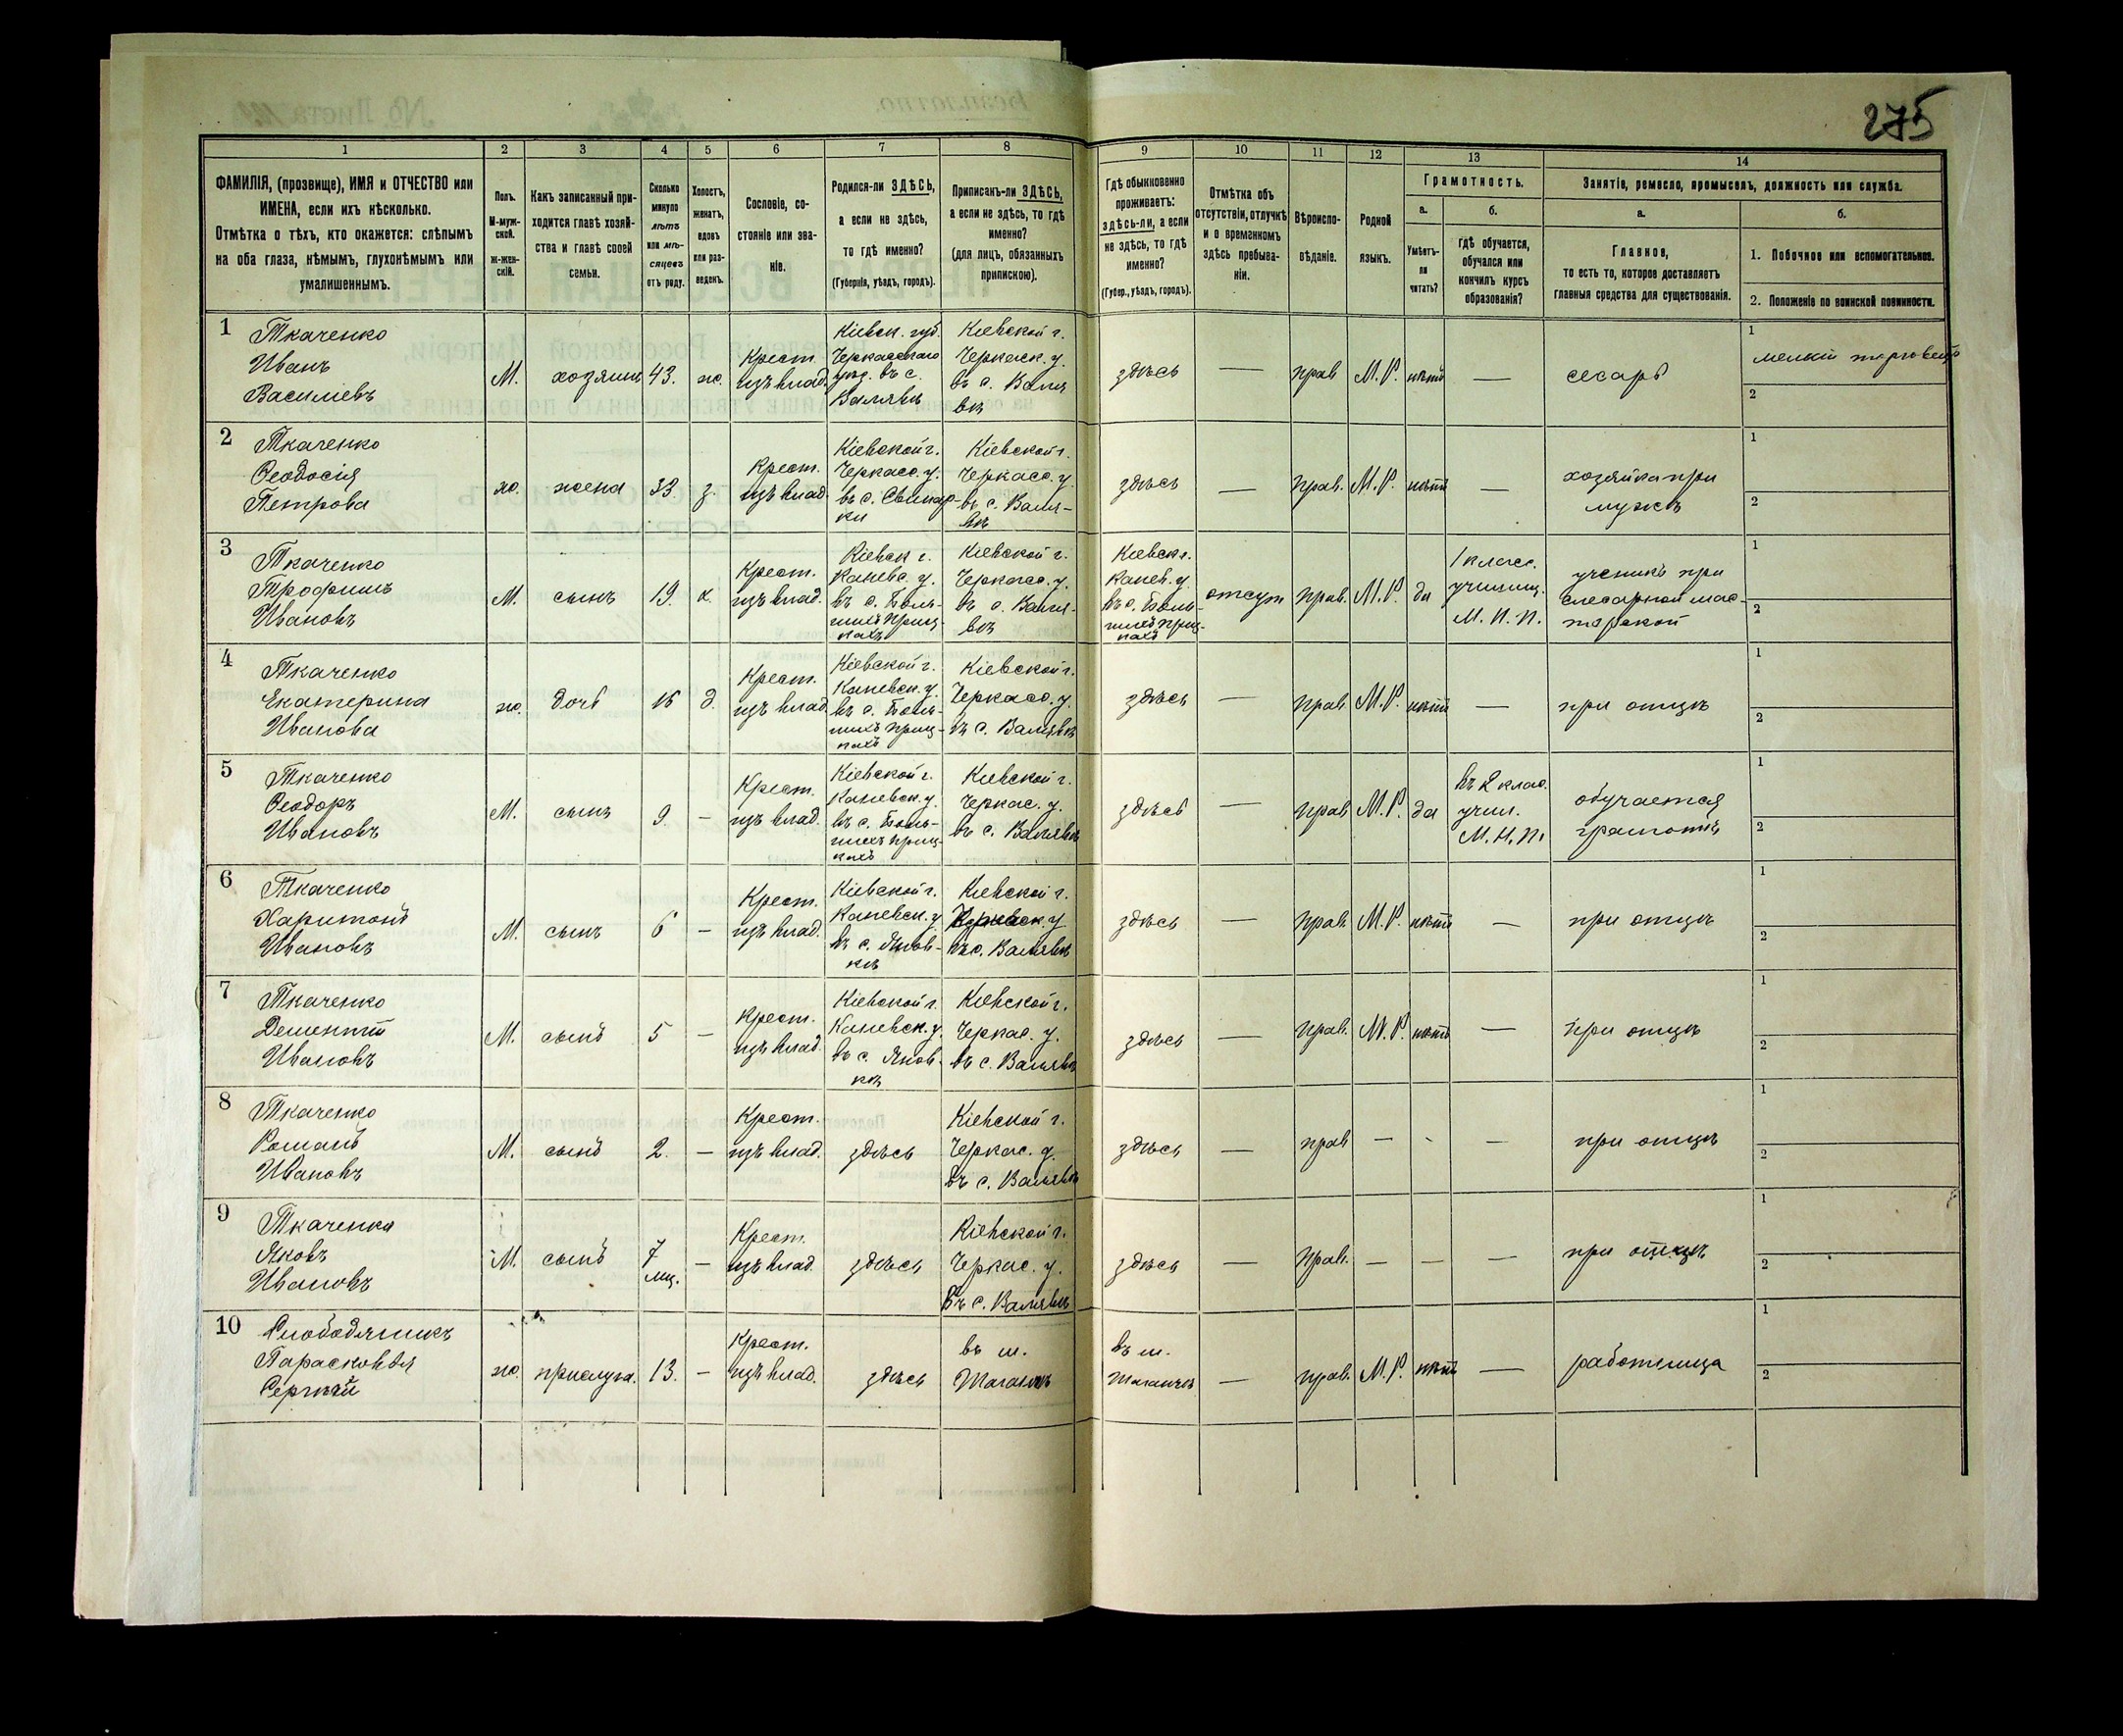 275
1 2 3 4 5 6 7 8 9 10 11 12 13 14
ФАМИЛІЯ, (прозвище), ИМЯ и ОТЧЕСТВО или
ИМЕНА, если ихъ нѣсколько.
Отмѣтка о тѣхъ, кто окажется: слѣпымъ
на оба глаза, нѣмымъ, глухонѣмымъ или
умалишеннымъ.
Полъ.
М-муж-
ской.
Ж-жен-
скій.
Какъ записанный при-
ходится главѣ хозяй-
ства и главѣ своей
семьи.
Сколько
минуло
лѣтъ
или мѣ-
сяцевъ
отъ роду.
Холостъ,
женатъ,
вдовъ
или раз-
веденъ.
Сословіе, со-
стояніе или зва-
ніе.
Родился-ли ЗДѢСЬ,
а если не здѣсь,
то гдѣ именно?
(Губернія, уѣздъ, городъ).
Приписанъ-ли ЗДѢСЬ,
а если не здѣсь, то гдѣ
именно?
(для лицъ, обязанныхъ
припискою).
Гдѣ обыкновенно
проживаетъ:
здѣсь-ли, а если
не здѣсь, то гдѣ
именно?
(Губер., уѣздъ, городъ).
Отмѣтка объ
отсутствіи, отлучкѣ
и о временномъ
здѣсь пребыва-
ніи.
Вѣроиспо-
вѣданіе.
Родной
языкъ.
Грамотность.
а.
Умѣетъ-
ли
читать?
б.
гдѣ обучается,
обучался или
кончилъ курсъ
образованія?
Занятіе, ремесло, промыселъ, должность или служба.
а.
Главное,
то есть то, которое доставляетъ
главныя средства для существованія.
б.
1. Побочное или вспомогательное.
2. Положеніе по воинской повинности.
1
Ткаченко
Иванъ
Василіевъ
М.
хозяинъ
43.
ж.
Крест.
изъ влад.
Кіевск. губ.
Черкасскаго
уѣзд. въ с.
Валявкѣ
Кіевской г.
Черкаск. у.
въ с. Валя
вкѣ
здѣсь
—
прав
М. Р.
нѣтъ
—
сесарь
1
мелкій торговецъ
2
2
Ткаченко
Ѳеодосія
Петрова
ж.
жена
33.
з.
Крест.
изъ влад.
Кіевской г.
Черкасс. у.
въ с. Свинар-
ки
Кіевской г.
Черкасс. у.
въ с. Валя-
вкѣ
здѣсь
—
прав.
М. Р.
нѣтъ
—
хозяйка при
мужѣ
1
2
3
Ткаченко
Трофимъ
Ивановъ
М.
сынъ
19.
х.
Крест.
изъ влад.
Кіевск г.
Каневс. у.
въ с. Боль-
шихъ Приц-
кахъ
Кіевской г.
Черкасс. у.
въ с. Валя-
вкѣ
Кіевск г.
Канев. у.
въ с. Боль-
шихъ Приц-
кахъ
отсут
прав.
М. Р.
да
1 класс.
училищ.
М. Н. П.
ученикъ при
слесарной мас-
терской
1
2
4
Ткаченко
Екатерина
Иванова
ж.
дочь
16
д.
Крест.
изъ влад.
Кіевской г.
Каневск. у.
въ с. Боль-
шихъ Приц-
кахъ
Кіевской г.
Черкасс. у.
въ с. Валявкѣ
здѣсь
—
прав.
М. Р.
нѣтъ
—
при отцѣ
1
2
5
Ткаченко
Ѳеодоръ
Ивановъ
М.
сынъ
9.
—
Крест.
изъ влад.
Кіевской г.
Каневск. у.
въ с. Боль-
шихъ Приц-
кахъ
Кіевской г.
Черкас. у.
въ с. Валявкѣ
здѣсь
—
прав
М. Р.
да
въ 2 клас.
учил.
М. Н. П.
обучается
грамотѣ
1
2
6
Ткаченко
Харитонъ
Ивановъ
М.
сынъ
6
—
Крест.
изъ влад.
Кіевской г.
Каневск. у
въ с. Янов-
кѣ
Кіевской г.
въ с. Валявкѣ
здѣсь
—
прав.
М. Р.
нѣтъ
—
при отцѣ
1
2
7
Ткаченко
Дементій
Ивановъ
М.
сынъ
5
—
Крест.
изъ влад.
Кіевской г.
Каневск. у.
въ с. Янов-
кѣ
Кіевской г.
Черкас. у.
въ с. Валявкѣ
здѣсь
—
прав.
М. Р.
нѣтъ
—
при отцѣ
1
2
8
Ткаченко
Романъ
Ивановъ
М.
сынъ
2.
—
Крест.
изъ влад.
здѣсь
Кіевской г.
Черкас. у.
въ с. Валявкѣ
здѣсь
—
прав
—
-
—
при отцѣ
1
2
9
Ткаченко
Яковъ
Ивановъ
М.
сынъ
7
мц.
—
Крест.
изъ влад.
здѣсь
Кіевской г.
Черкас. у.
въ с. Валявкѣ
здѣсь
—
прав.
—
—
—
при отцѣ
1
2
10
Слободяникъ
Парасковья
Сергѣй
ж.
прислуга.
13.
—
Крест.
изъ влад.
здѣсь
въ м.
въ м.
—
прав.
М. Р.
нѣтъ
—
работница
1
2